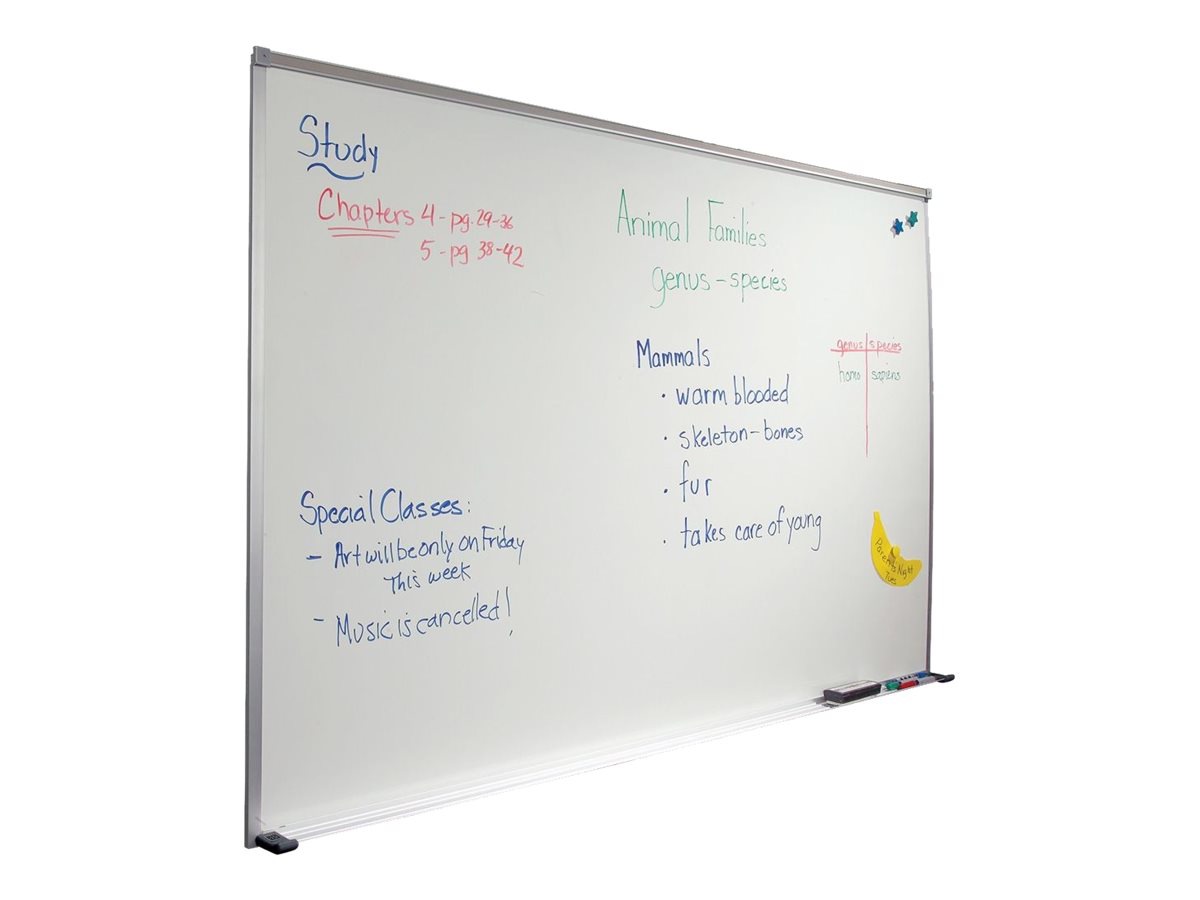 Study
Chapters 4 - pg. 29-36
5 - pg 38-42
Special Classes:
- Art will be only on Friday
This week
- Music is cancelled!
Animal Families
genus - species
Mammals
· warm blooded
· skeleton - bones
· fur
· takes care of young
genus species
homo sapiens
Parents Night
Tues